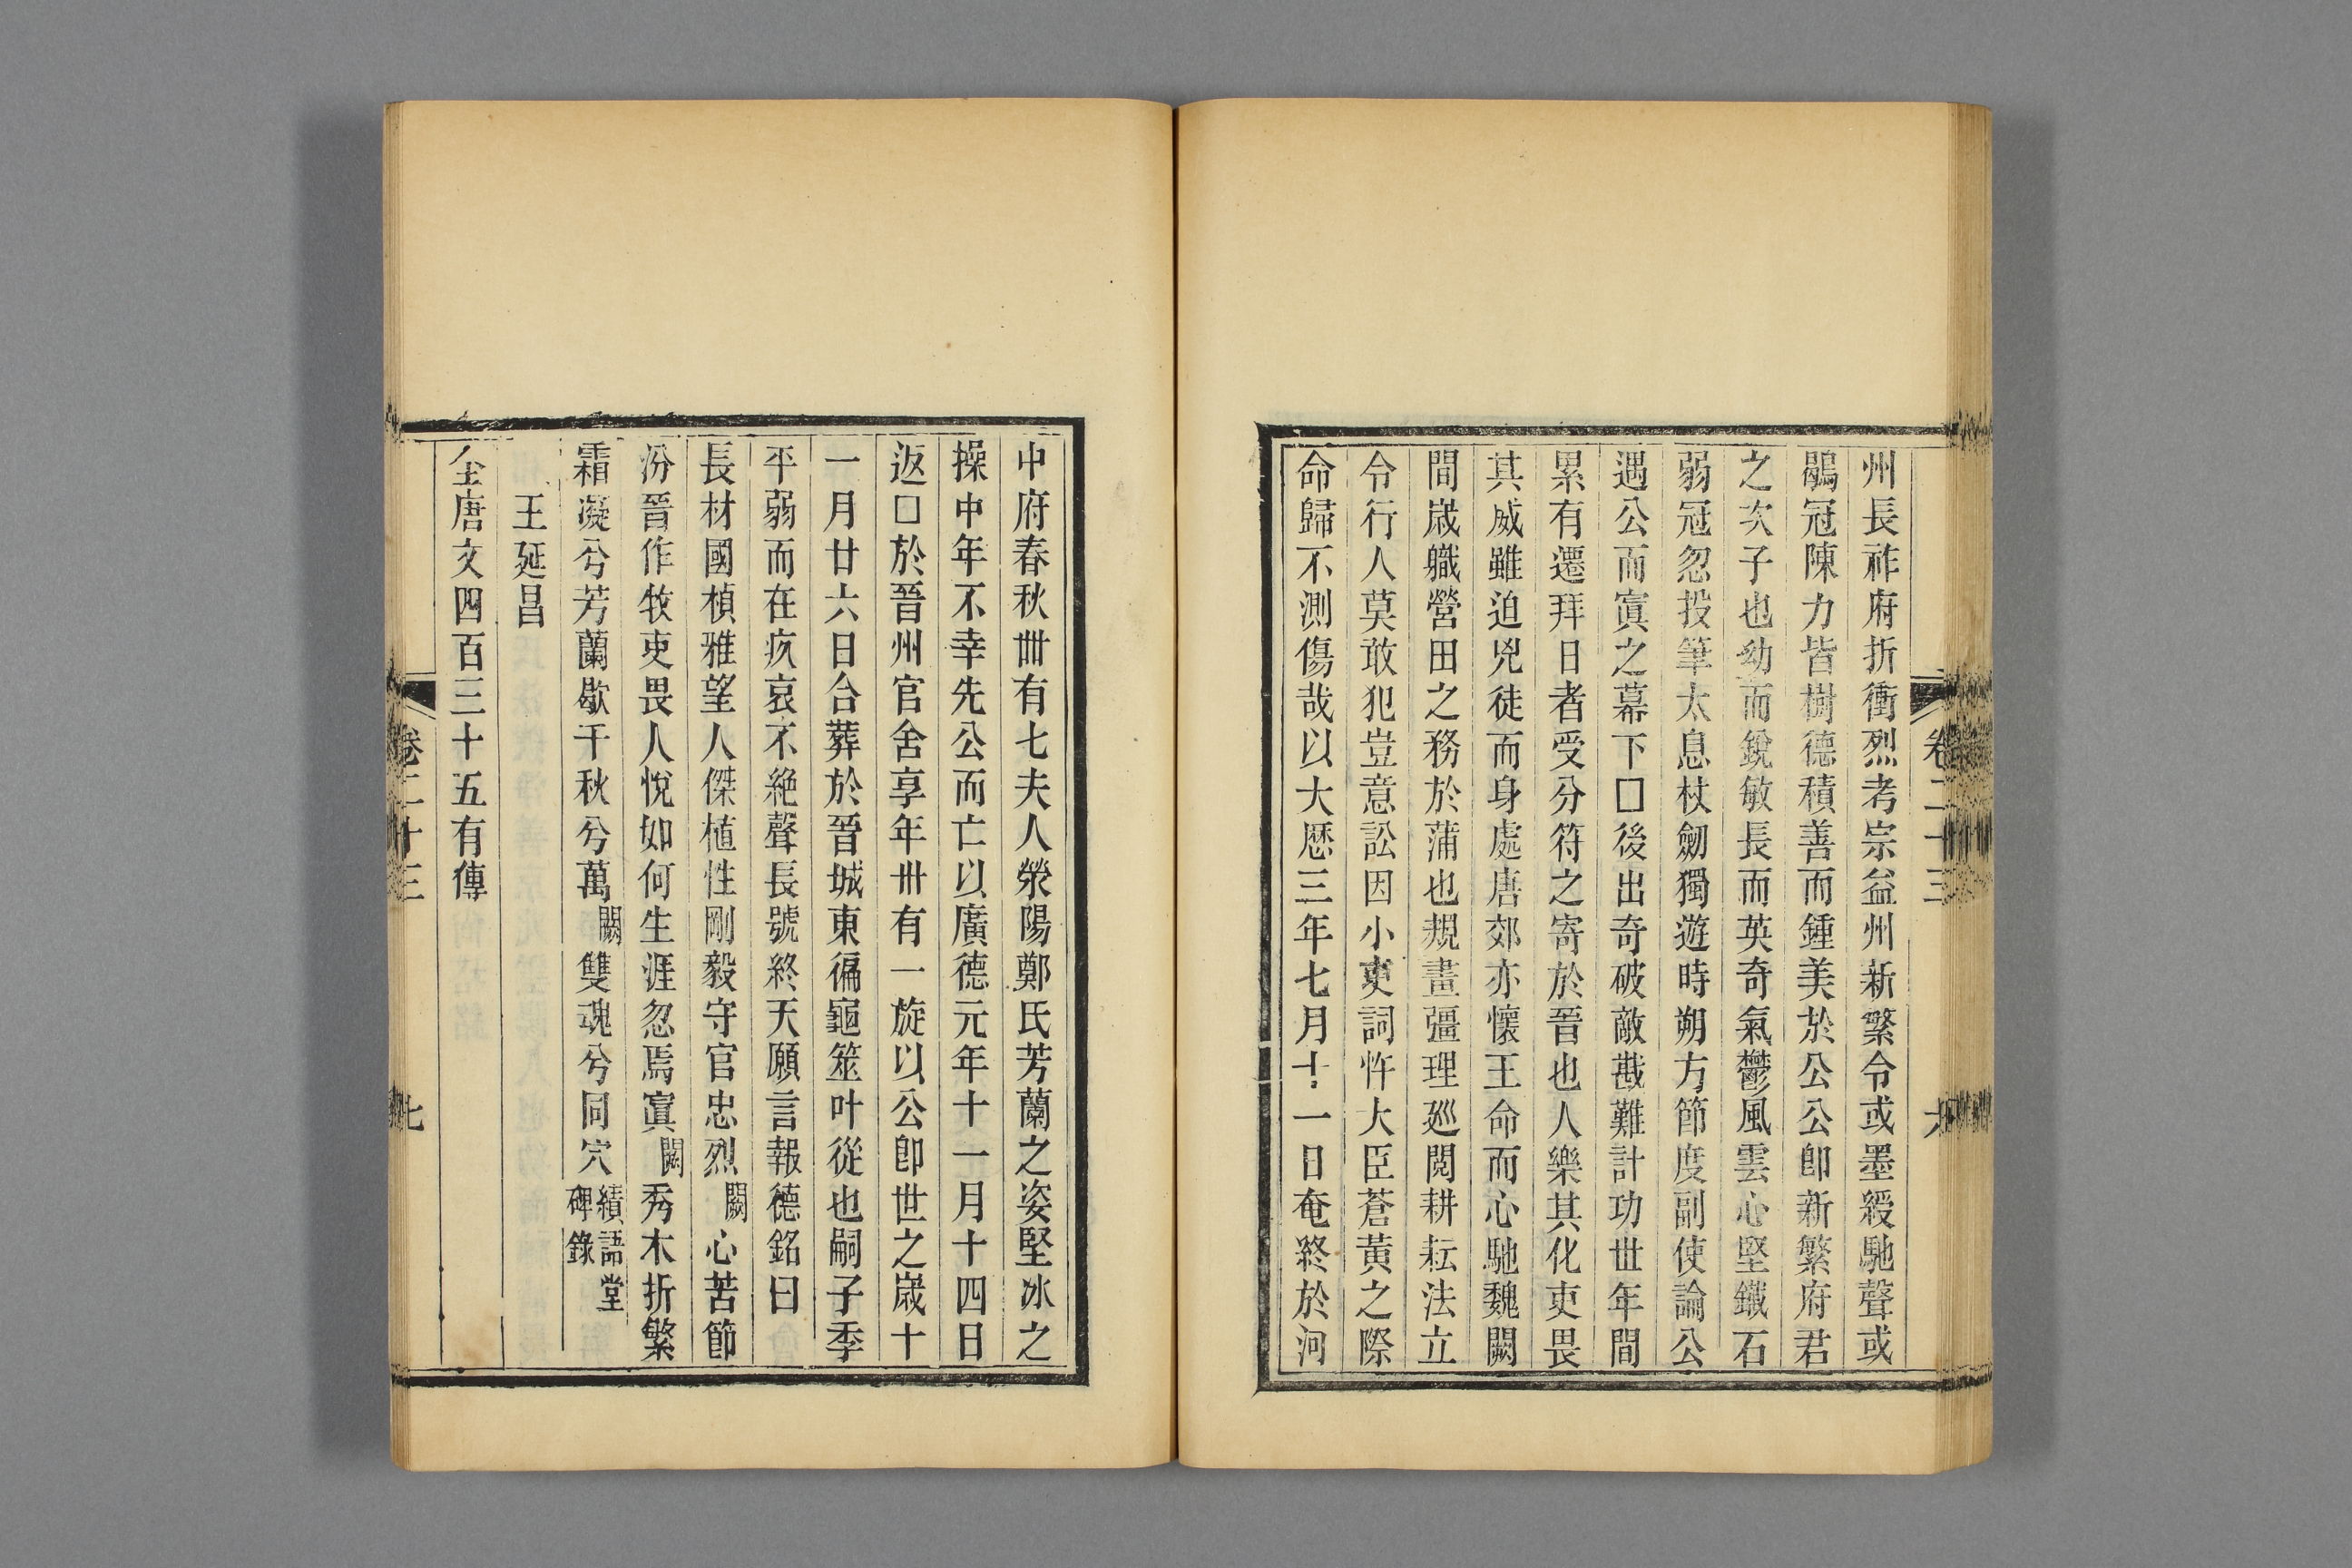 州長祚府折衝烈考宗益州新繁令或墨綬馳聲或
鶡冠陳力皆樹德積善而鍾美於公公卽新繁府君
之次子也幼而銳敏長而英奇氣鬱風雲心堅鐵石
弱冠忽投筆太息杖劒獨遊時朔方節度副使論公
遇公而寘之幕下□後出奇破敵戡難計功丗年間
累有遷拜日者受分符之寄於晉也人樂其化吏畏
其威雖迫兇徒而身處唐郊亦懷王命而心馳魏闕
間歲職營田之務於蒲也規畫疆理廵閱耕耘法立
令行人莫敢犯豈意訟因小吏詞忤大臣蒼黃之際
命歸不測傷哉以大歷三年七月十一日奄終於河
中府春秋卌有七夫人滎陽鄭氏芳蘭之姿堅冰之
操中年不幸先公而亡以廣德元年十一月十四日
返□於晉州官舍享年卅有一旋以公卽世之歲十
一月廿六日合葬於晉城東偏龜筮叶從也嗣子季
平弱而在疚哀不絶聲長號終天願言報德銘曰
長材國楨雅望人傑植性剛毅守官忠烈闕心苦節
汾晉作牧吏畏人悅如何生涯忽焉寘闕秀木折繁
霜凝兮芳蘭歇千秋兮萬闕雙魂兮同穴績語堂碑錄
王延昌
全唐文四百三十五有傳
卷二十三